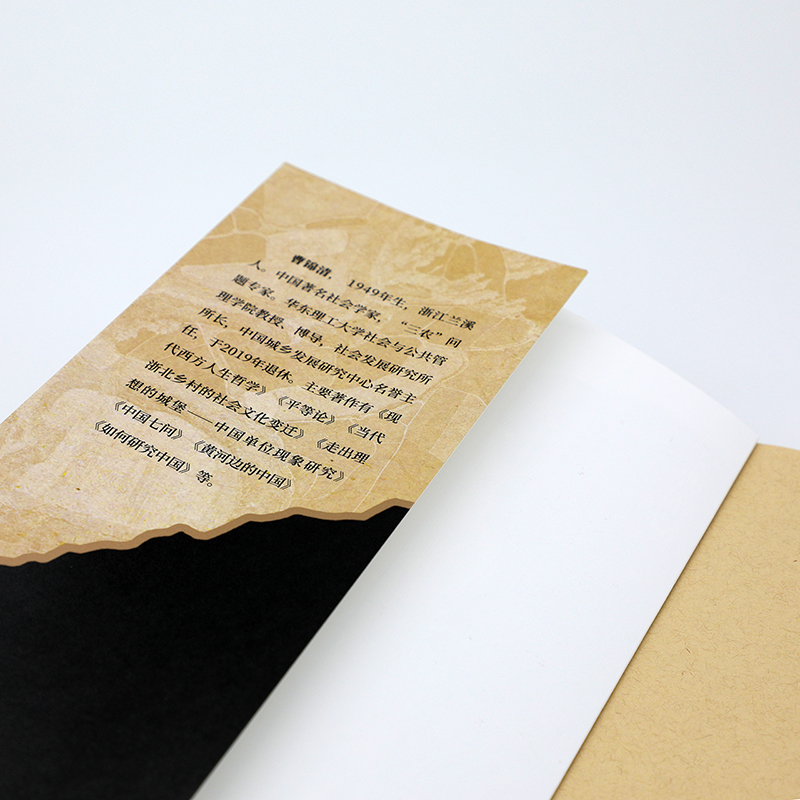 曹锦清，1949年生，浙江兰溪
人。中国著名社会学家，“三农”问
题专家。华东理工大学社会与公共管
理学院教授、博导，社会发展研究所
所长，中国城乡发展研究中心名誉主
任，于2019年退休。主要著作有《现
代西方人生哲学》《平等论》《当代
浙北乡村的社会文化变迁》《走出理
想的城堡——中国单位现象研究》
《中国七问》《黄河边的中国》
《如何研究中国》等。